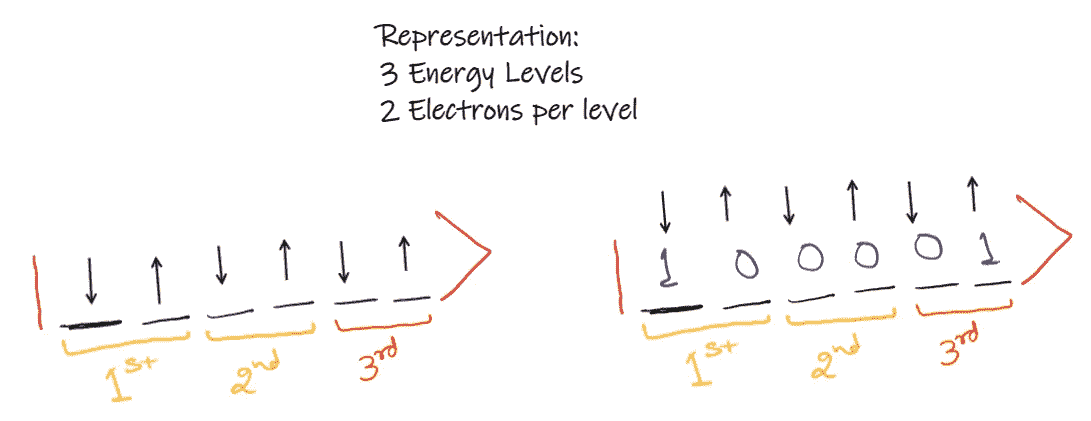 Representation:
3 Energy Levels
2 Electrons per level
↓ ↑ ↓ ↑ ↓ ↑
1st 2nd 3rd
↓ ↑ ↓ ↑ ↓ ↑
1 0 0 0 0 1
1st 2nd 3rd